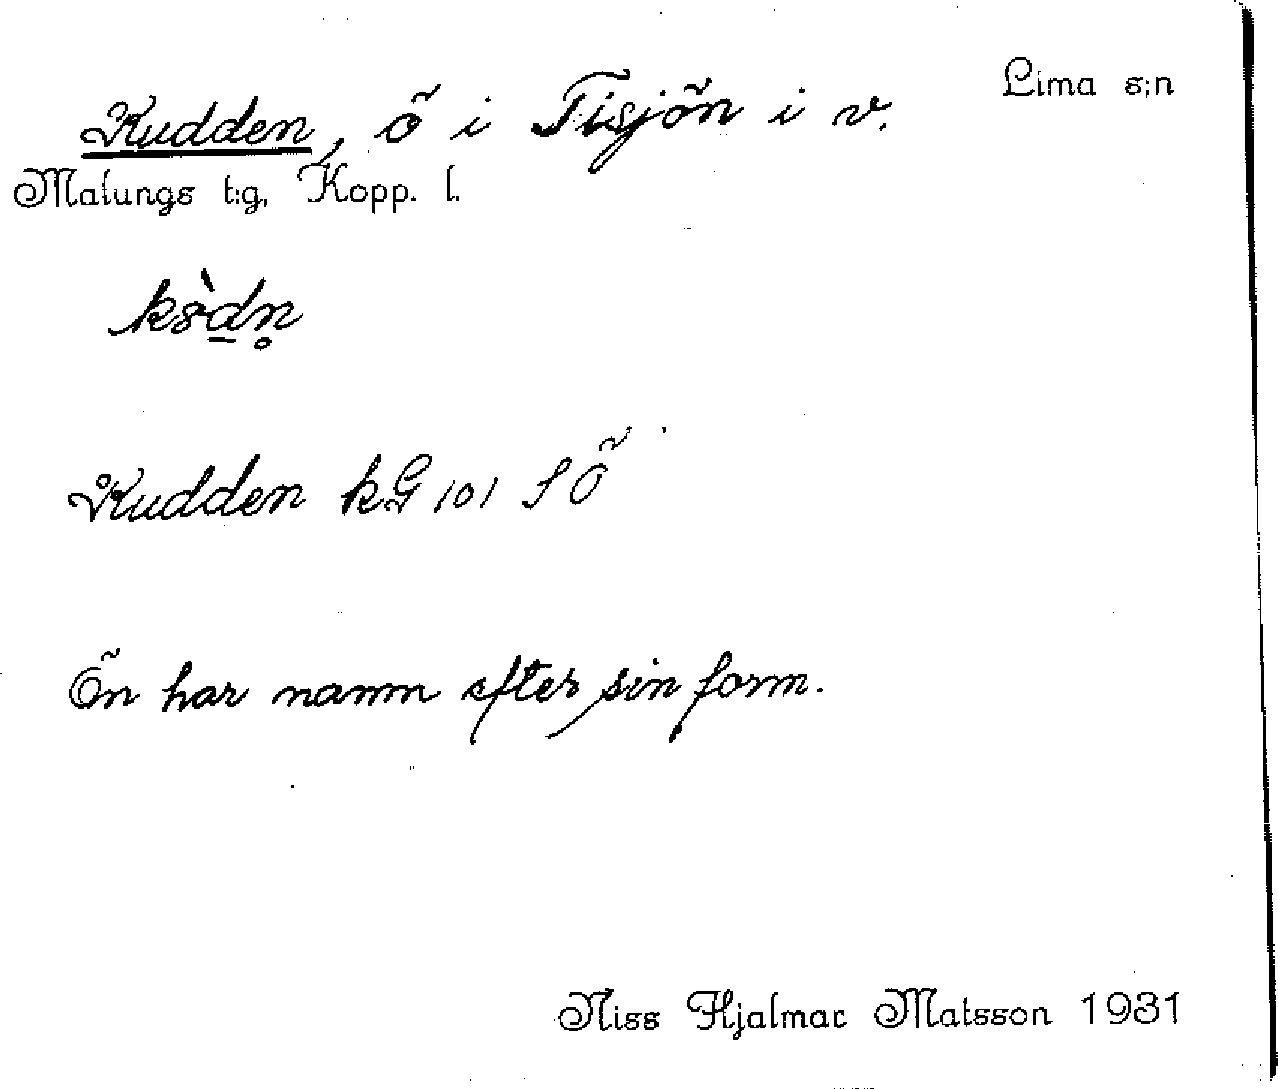 Lima s:n
Kudden, ö i Tisjön i v.
Malungs t:g, Kopp. l.
Kudden kG 101 SÖ
Ön har namn efter sin form.
Niss Hjalmar Matsson 1931